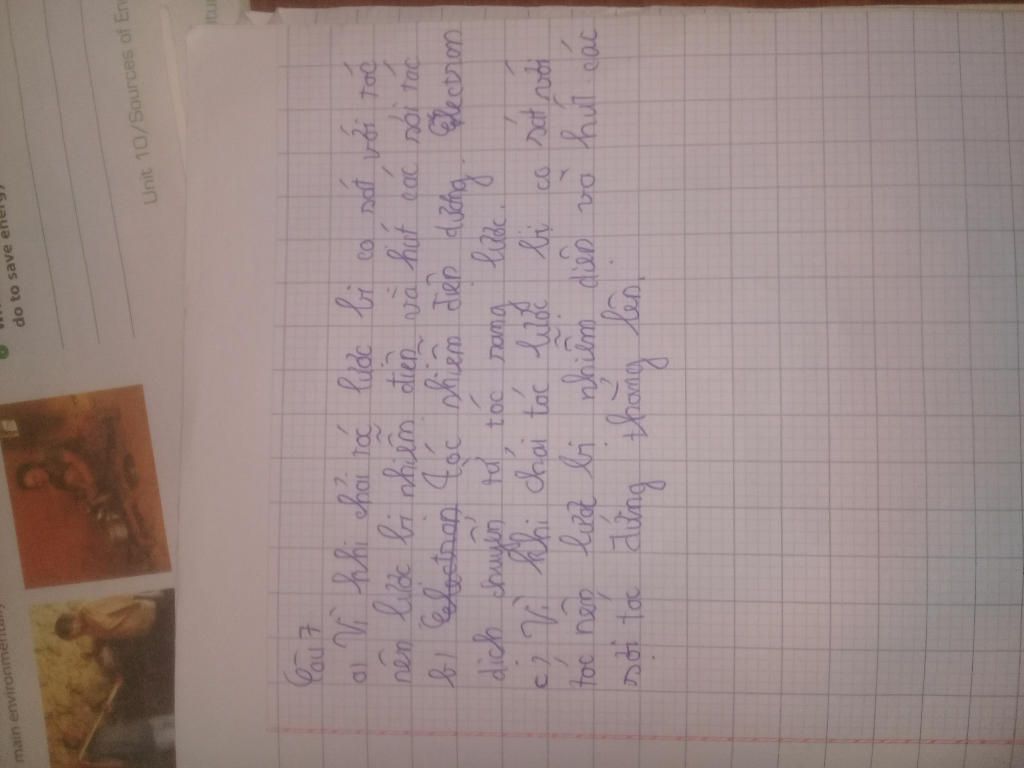 Câu 7
a) Vì khi chải tóc lược bị cọ sát với tóc
nên lược bị nhiễm điện và hút các sợi tóc
b) Tóc nhiễm điện dương. Electron
dịch chuyển từ tóc sang lược.
c) Vì khi chải tóc lược bị cọ sát với
tóc nên lược bị nhiễm điện và hút các
sợi tóc đứng thẳng lên.
do to save energy,
Unit 10/Sources of En
main environmental